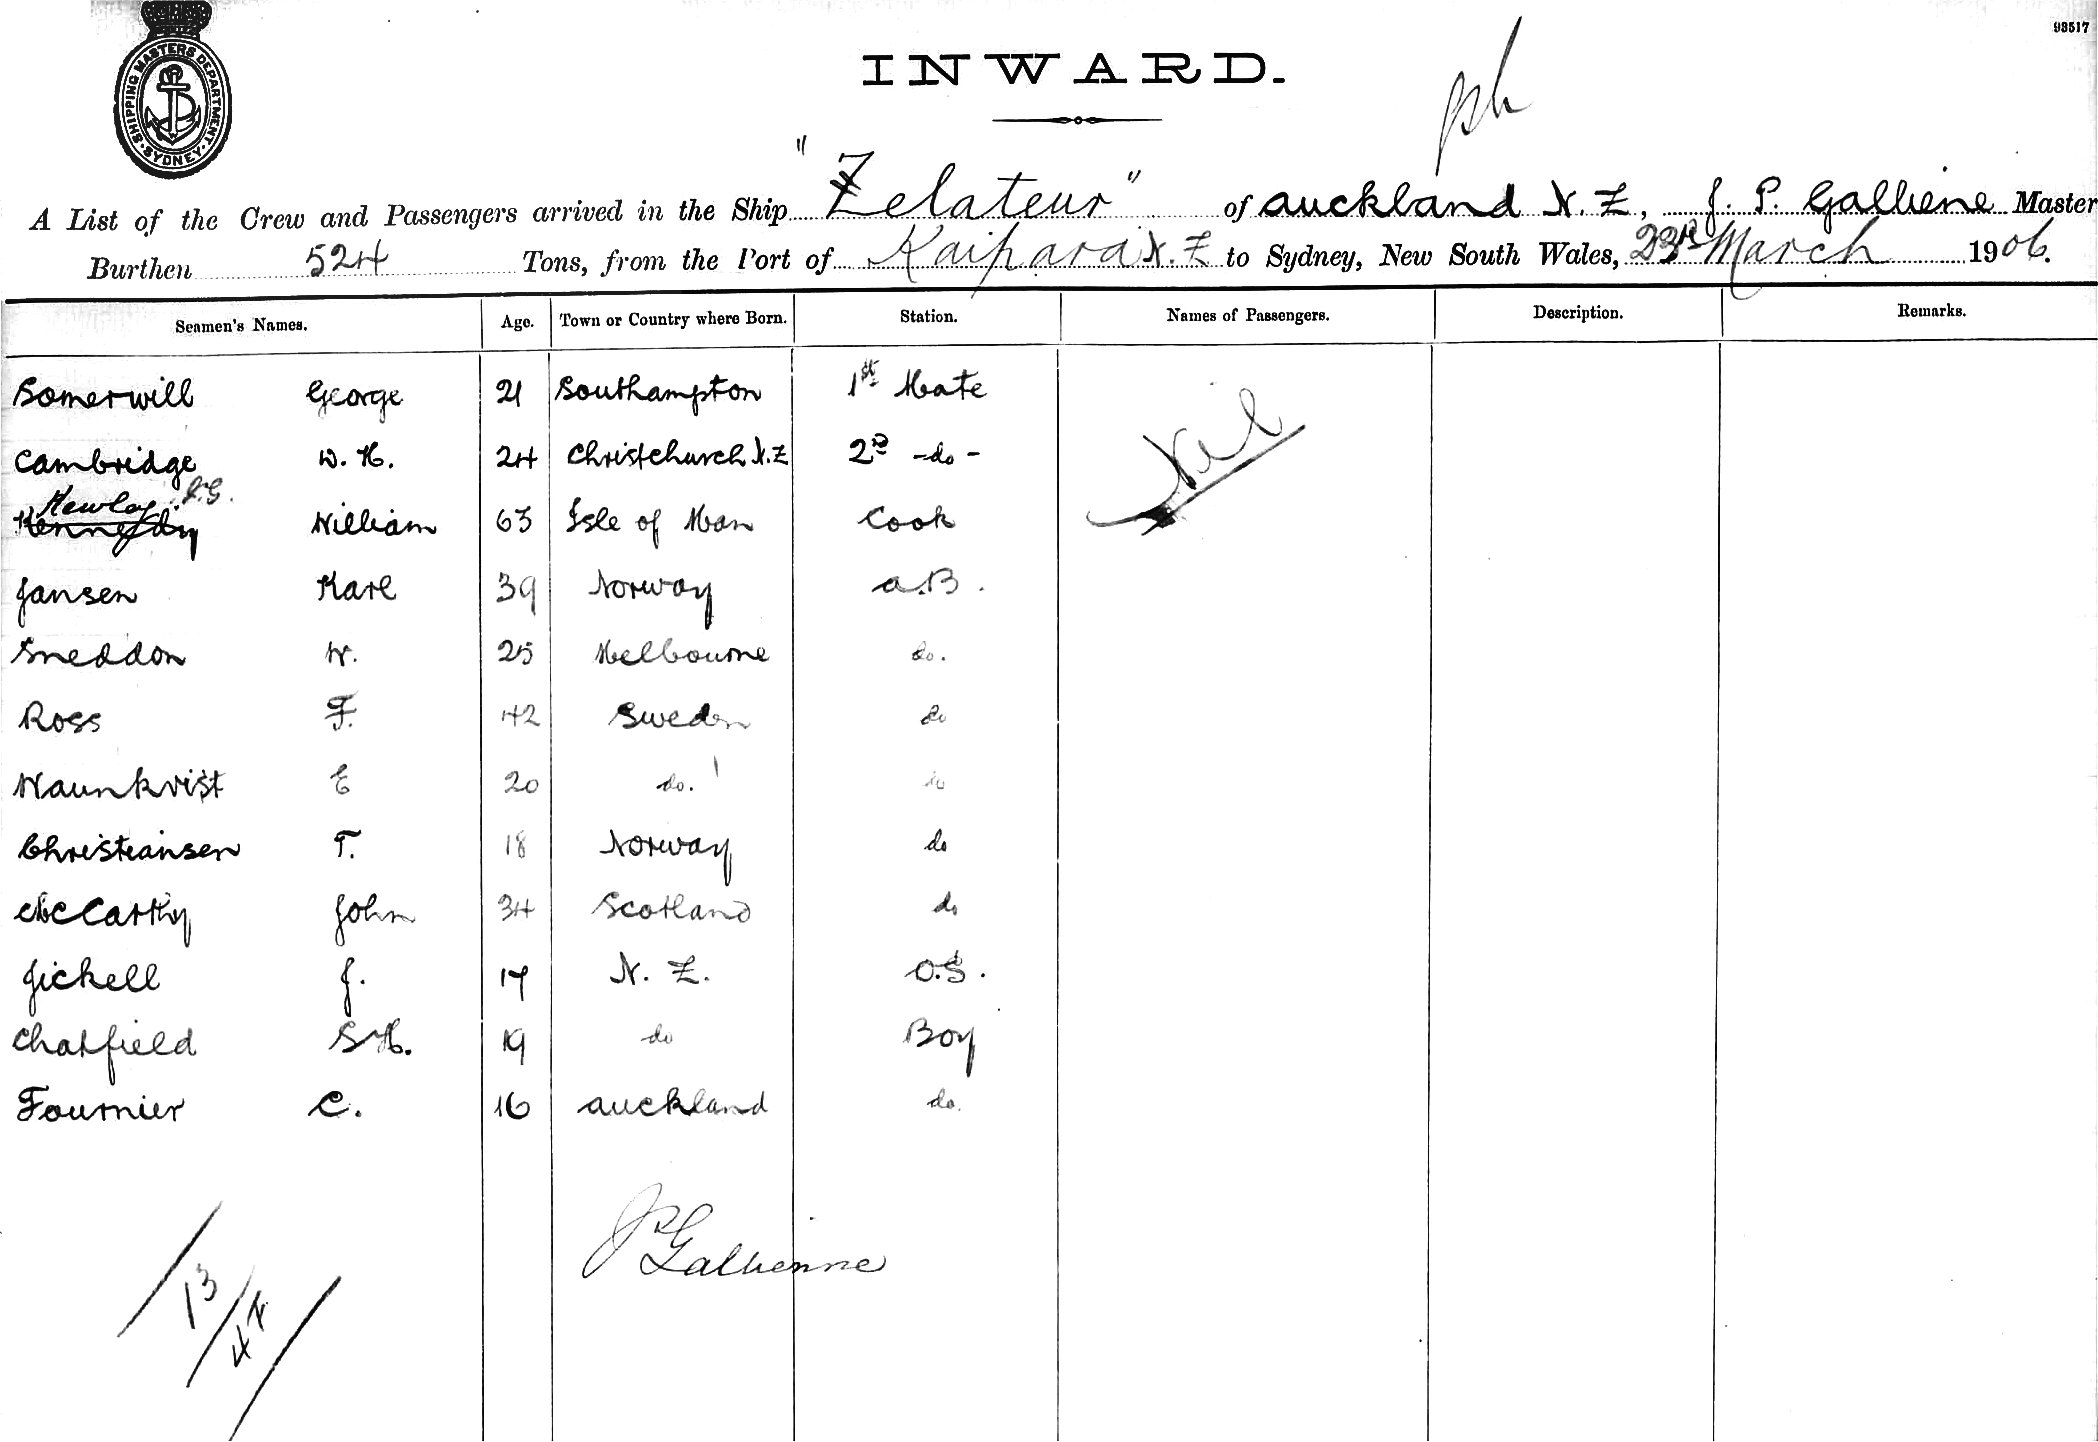 93517
SHIPPING MASTERS DEPARTMENT
SYDNEY
INWARD.
A List of the Crew and Passengers arrived in the Ship "Zelateur" of Auckland N.Z, J. P. Galliene Master
Burthen 524 Tons, from the Port of Kaipara N.Z to Sydney, New South Wales, 23rd March 1906.
Seamen's Names. Age. Town or Country where Born. Station. Names of Passengers. Description. Remarks.
Somerwill George 21 Southampton 1st Mate Nil
Cambridge W. H. 24 Christchurch N.Z 2nd -do-
Kewley
Kennedy William 63 Isle of Man Cook
Jansen Karl 39 Norway A.B.
Sneddon W. 25 Melbourne do.
Ross F. 42 Sweden do
Naunkvist E 20 do. do
Christiansen T. 18 Norway do
McCarthy John 34 Scotland do
Jickell J. 17 N. Z. O.S.
Chatfield S H. 19 do Boy
Fournier C. 16 Auckland do.
JP Gallienne
13